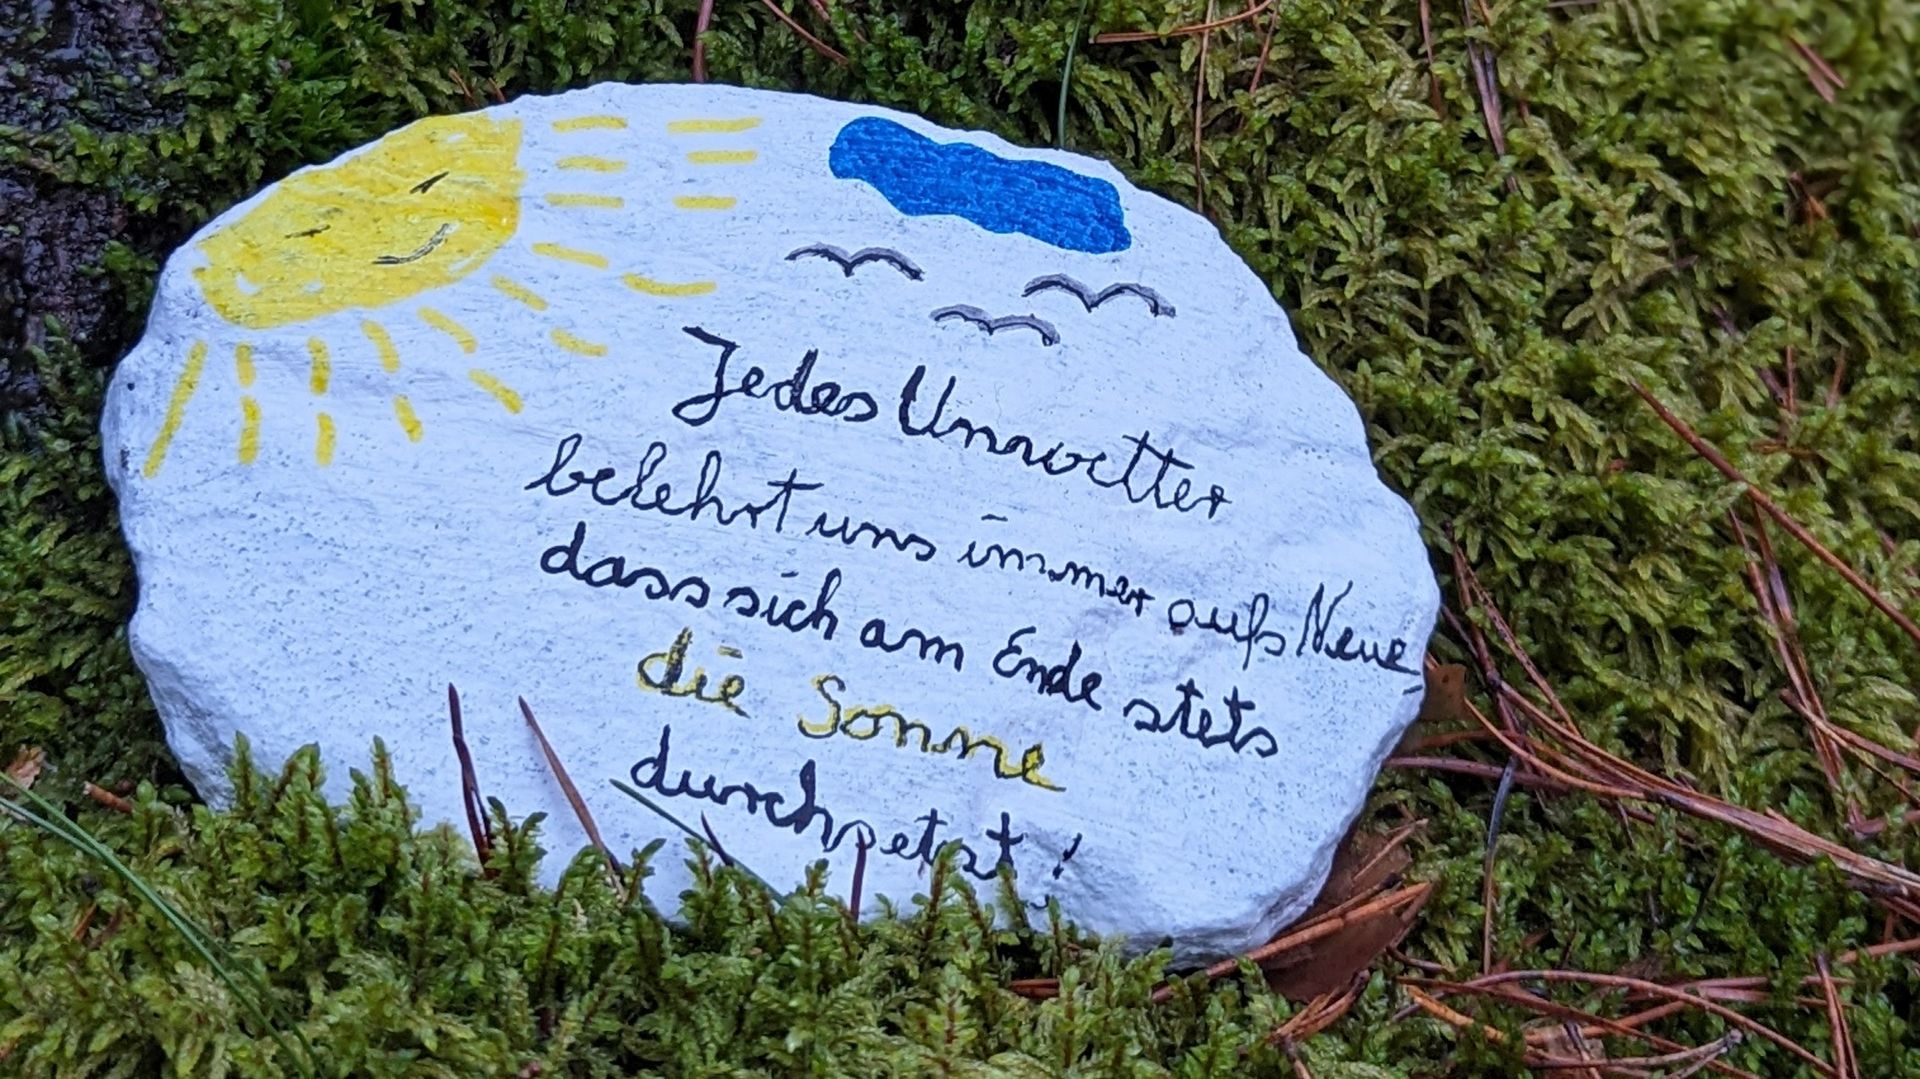 Jedes Unwetter
belehrt uns immer aufs Neue
dass sich am Ende stets
die Sonne
durchsetzt!